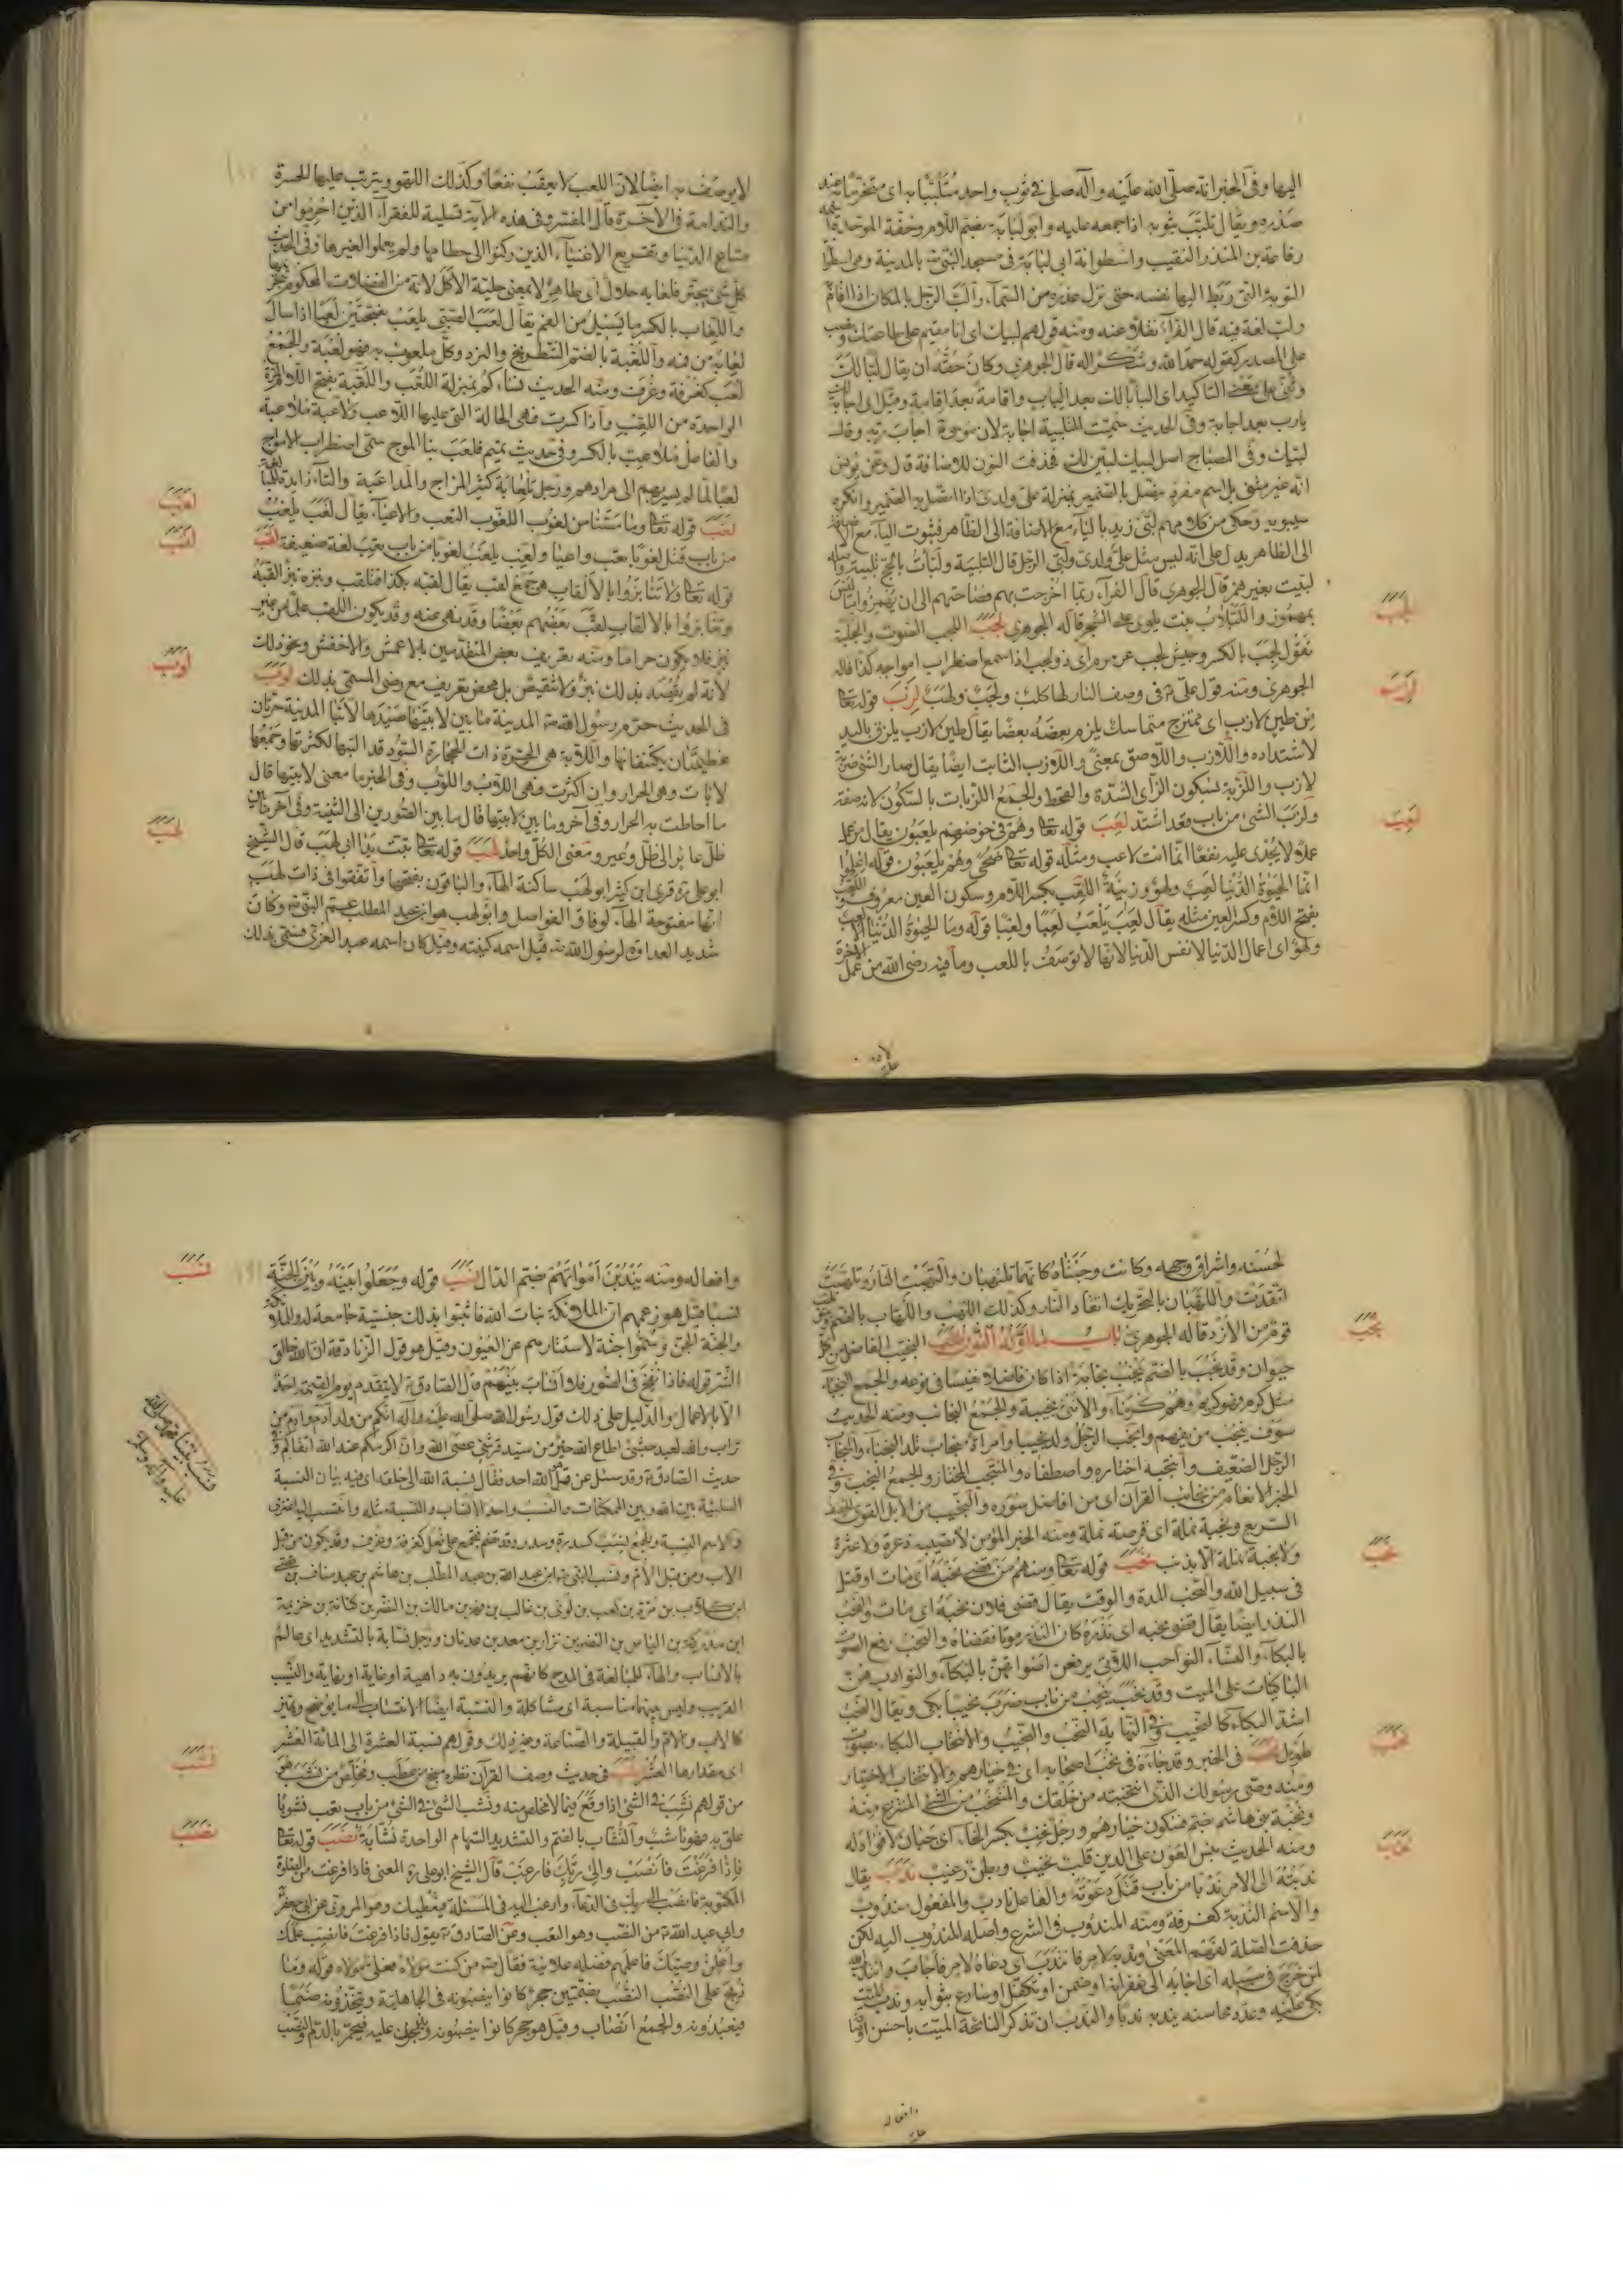 اليها وفى الخبر انه صلى الله عليه وآله صلى فى ثوب واحد متلببا به اى متحزما به عند
صدره ويقال تلبب بثوبه اذا جمعه عليه وابو لبابة بضم اللام وخفة الموحدة
رفاعة بن المنذر النقيب واسطوانة ابى لبابة فى مسجد النبى بالمدينة وهى اسطوانة
التوبة التى ربط اليها نفسه حتى نزل عذره من السماء والب الرجل بالمكان اذا اقام
ولب لغة فيه قال الفراء نقلا عنه ومنه قولهم لبيك اى انا مقيم على طاعتك ونصب
على المصدر كقوله حمدا لله وشكرا له قال الجوهرى وكان حقه ان يقال لبا لك
وثنى على معنى التاكيد اى البابا لك بعد الباب واقامة بعد اقامة وقيل اى اجابة لك
يا رب بعد اجابة وفى الحديث سميت التلبية اجابة لان موسى اجاب ربه وقال
لبيك وفى المصباح اصل لبيك لبين لك فحذفت النون للاضافة قال وعن يونس
انه غير مثنى بل اسم مفرد يتصل به الضمير بمنزلة على ولدى اذا اتصل به الضمير وانكره
سيبويه وحكى من كلامهم لبى زيد بالياء مع الاضافة الى الظاهر فثبوت الياء مع الاضافة
الى الظاهر يدل على انه ليس مثل على ولدى ولبى الرجل قال التلبية ولبأت بالحج تلبية واصله
لبيت بغير همز قال الجوهرى قال الفراء ربما اخرجت بهم فصاحتهم الى ان يهمزوا ما ليس
بمهموز واللبلاب نبت يلوى على الشجر قاله الجوهرى لجب اللجب الصوت والجلبة
تقول لجب بالكسر وجيش لجب عرمرم اى ذو لجب اذا سمع اضطراب امواجه كذا قاله
الجوهرى ومنه قول على فى وصف النار لها كلب ولجب ولهب لزب قوله تعا
من طين لازب اى ممتزج متماسك يلزم بعضه بعضا يقال طين لازب يلزق باليد
لاشتداده واللازب واللاصق بمعنى واللازب الثابت ايضا يقال صار الشئ ضربة
لازب واللزبة بسكون الزاى الشدة والقحط والجمع اللزبات بالسكون لانه صفة
ولزب الشئ من باب قعد اشتد لعب قوله تعا وهم فى خوضهم يلعبون يقال من عمل
عملا لا يجدى عليه نفعا انما انت لاعب ومثله قوله تعا ضحى وهم يلعبون قوله اعلموا
انما الحيوة الدنيا لعب ولهو وزينة اللعب بكسر اللام وسكون العين معروف واللعب
بفتح اللام وكسر العين مثله يقال لعب يلعب لعبا ولعبا قوله وما الحيوة الدنيا الا لعب
ولهو اى اعمال الدنيا لا نفس الدنيا لانها لا توصف باللعب وما فيه رضى الله من عمل الاخرة
لا يوصف به ايضا لان اللعب لا يعقب نفعا وكذلك اللهو ويترتب عليها الحسرة
والندامة فى الآخرة قال المفسر وفى هذه الاية تسلية للفقراء الذين احرموا من
متاع الدنيا وتقريع الاغنياء الذين ركنوا الى حطامها ولم يعملوا لغيرها وفى الحديث
كل شئ يجتر فلعابه حلال اى طاهر لا بمعنى حلية الاكل لانه من الفضلات المحكوم بحرمتها
واللعاب بالكسر ما يسيل من الفم يقال لعب الصبى يلعب بفتحتين لعبا اذا سال
لعابه من فمه واللعبة بالضم الشطرنج والنرد وكل ملعوب به فهو لعبة والجمع
لعب كغرفة وغرف ومنه الحديث نساءكم بمنزلة اللعب واللعبة بفتح اللام المرة
الواحدة من اللعب واذا كسرت فهى الحالة التى عليها اللاعب ولاعبة ملاعبة
والفاعل ملاعب بالكسر وفى حديث تميم فلعب بنا الموج سمى اضطراب الامواج
لعبا لما لم يسر بهم الى مرادهم ورجل تلعابة كثير المزاح والمداعبة والتاء زايدة للمبالغة
لغب قوله تعا وما مسنا من لغوب اللغوب التعب والاعياء يقال لغب يلغب
من باب قتل لغوبا تعب واعيا ولغب يلغب لغوبا من باب تعب لغة ضعيفة لقب
قوله تعا ولا تنابزوا بالالقاب هى جمع لقب يقال لقبه بكذا فتلقب ونبزه نبز القبه
وتنابزوا بالالقاب لقب بعضهم بعضا وقد نهى عنه وقد يكون اللقب علما من غير
نبز فلا يكون حراما ومنه تعريف بعض المتقدمين بالاعمش والاخفش ونحو ذلك
لانه لم يقصد بذلك نبز ولا تنقيص بل محض تعريف مع رضى المسمى بذلك لوب
فى الحديث حرم رسول الله المدينة ما بين لابتيها صيدها لابتا المدينة حرتان
عظيمتان يكتنفانها واللابة هى الحرة ذات الحجارة السود قد البستها لكثرتها وجمعها
لابات وهى الحرار وان اكثرت فهى اللاب واللوب وفى الخبر ما معنى لابتيها قال
ما احاطت به الحرار وفى آخر وما بين لابتيها قال ما بين الصورين الى الثنية وفى آخر ما بين
ظل عاير الى ظل وعير ومعنى الكل واحد لهب قوله تعا تبت يدا ابى لهب قال الشيخ
ابو على ره قرى ابن كثير ابو لهب ساكنة الهاء والباقون بفتحها واتفقوا فى ذات لهب
انها مفتوحة الهاء لوفاق الفواصل وابو لهب هو ابن عبد المطلب عم النبى وكان
شديد العداوة لرسول الله قيل اسمه كنيته وقيل كان اسمه عبد العزى فسمى بذلك
لغب
لقب
لوب
لهب
لجب
لزب
لعب
لحسنه واشراق وجهه وكانت وجنتاه كانهما تلتهبان والتهبت النار وتلهبت
اتقدت واللهبان بالتحريك اتقاد النار وكذلك اللهب واللهاب بالضم
قوم من الازد قاله الجوهرى باب ما اوله النون نجب النجيب الفاضل من كل
حيوان وقد نجب بالضم ينجب نجابة اذا كان فاضلا نفيسا فى نوعه والجمع النجباء
مثل كرم فهو كريم وهم كرماء والانثى نجيبة والجمع النجائب ومنه الحديث
سوف ينجب من يفهم وانجب الرجل ولد نجيبا وامراة منجاب تلد النجباء والمنجاب
الرجل الضعيف وانتجبه اختاره واصطفاه والمنتجب المختار والجمع النجب وفى
الخبر الانعام من نجائب القرآن اى من افاضل سوره والنجيب من الابل القوى الخفيف
السريع ونجبة نملة اى قرصة نملة ومنه الخبر المؤمن لا تصيبه ذعرة ولا عثرة
ولا نجبة نملة الا بذنب نحب قوله تعا ومنهم من قضى نحبه اى مات او قتل
فى سبيل الله والنحب المدة والوقت يقال قضى فلان نحبه اى مات والنحب
النذر ايضا يقال قضى نحبه اى نذره كان النذر موتا فقضاه والنحب رفع الصوت
بالبكاء والنساء النواحب اللاتى يرفعن اصواتهن بالبكاء والنوادب هن
الباكيات على الميت وقد نحب ينحب من باب ضرب نحيبا بكى ويقال النحب
اشد البكاء كالنحيب وفى النهاية النحب والنحيب والانتحاب البكاء بصوت
طويل نخب فى الخبر وقد جاءه فى نخب اصحابه اى فى خيارهم والانتخاب الاختيار
ومنه وصلى رسولك الذى انتخبته من خلقك والمنتخب من الشئ المنتزع منه
ونخبة بنى هاشم بضم فسكون خيارهم ورجل نخب بكسر الخاء اى جبان لا فؤاد له
ومنه الحديث بئس العون على الدين قلب نخيب وبطن رغيب ندب يقال
ندبته الى الامر ندبا من باب قتل دعوته والفاعل نادب والمفعول مندوب
والاسم الندبة كغرفة ومنه المندوب فى الشرع واصله المندوب اليه لكن
حذفت الصلة لفهم المعنى وندبه لامر فانتدب اى دعاه لامر فاجاب وانتدب الله
لمن خرج فى سبيله اى اجابه الى غفرانه او ضمن او تكفل او سارع بثوابه وندب الميت
بكى عليه وعدد محاسنه يندبه ندبا والندب ان تذكر النائحة الميت باحسن اوصافه
وافعاله
نجب
نحب
نخب
ندب
وافعاله ومنه يندبن امواتهم بضم الدال نسب قوله وجعلوا بينه وبين الجنة
نسبا قيل هو زعمهم ان الملائكة بنات الله فاثبتوا بذلك جنسية جامعة له وللملائكة
والجنة الجن وسموا جنة لاستتارهم عن العيون وقيل هو قول الزنادقة ان الله خالق
الشر قوله فاذا نفخ فى الصور فلا انساب بينهم قال الصادق لا يتقدم يوم القيمة احد
الا بالاعمال والدليل على ذلك قول رسول الله صلى الله عليه وآله انكم من ولد آدم وآدم من
تراب والله لعبد حبشى اطاع الله خير من سيد قرشى عصى الله وان اكرمكم عند الله اتقاكم وفى
حديث الصادق وقد سئل عن قل هو الله احد فقال نسبة الله الى خلقه اى فيه بيان النسبة
السلبية بين الله وبين الممكنات والنسب واحد الانساب والنسبة مثله وانتسب اليه اعتزى
والاسم النسبة والجمع نسب كسدرة وسدر وقد تضم فتجمع على فعل كغرفة وغرف وقد يكون من قبل
الاب ومن قبل الام ونسب النبى ابن عبد الله بن عبد المطلب بن هاشم بن عبد مناف بن قصى
ابن كلاب بن مرة بن كعب بن لوى بن غالب بن فهر بن مالك بن النضر بن كنانة بن خزيمة
ابن مدركة بن الياس بن النضر بن نزار بن معد بن عدنان ورجل نسابة بالتشديد اى عالم
بالانساب والهاء للمبالغة فى المدح كانهم يريدون به داهية او غاية او نهاية والنسيب
القريب وليس بينهما مناسبة اى مشاكلة والنسبة ايضا الانتساب الى ما يوضح ويميز
كالاب والام والقبيلة والصناعة وغير ذلك وقولهم نسبة العشرة الى المائة العشر
اى مقدارها العشر نشب فى حديث وصف القرآن نظره ينج من عطب ويخلص من نشب هو
من قولهم نشب فى الشئ اذا وقع فيما لا مخلص منه ونشب الشئ فى الشئ من باب تعب نشوبا
علق به فهو ناشب والنشاب بالضم والتشديد السهام الواحدة نشابة نصب قوله تعا
فاذا فرغت فانصب والى ربك فارغب قال الشيخ ابو على ره المعنى فاذا فرغت من الصلوة
المكتوبة فانصب الى ربك فى الدعاء وارغب اليه فى المسئلة فيعطيك وهو المروى عن ابى جعفر
وابى عبد الله من النصب وهو التعب وعن الصادق يقول فاذا فرغت فانصب علمك
واعلن وصيك فاعلمهم فضله علانية فقال من كنت مولاه فعلى مولاه قوله وما
ذبح على النصب النصب بضمتين حجر كانوا ينصبونه فى الجاهلية ويتخذونه صنما
فيعبدونه والجمع انصاب وقيل هو حجر كانوا ينصبونه ويذبحون عليه فيحمر بالدم والنصب
نسب
نسب نبينا محمد صلى الله
عليه وآله وسلم
نشب
نصب